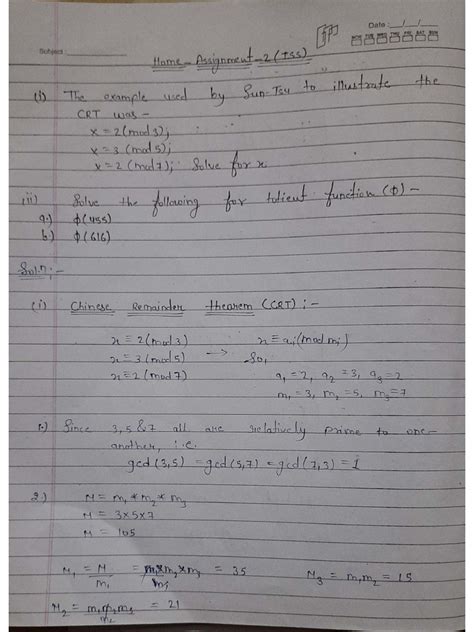 Subject:
Date: __/__/__
MON TUE WED THU FRI SAT SUN
Home-Assignment-2 (TSS)
(i) The example used by Sun-Tsu to illustrate the
CRT was -
x = 2 (mod 3);
x = 3 (mod 5);
x = 2 (mod 7); Solve for x
(ii) Solve the following for totient function (Φ) -
a.) Φ(455)
b.) Φ(616)
Soln:-
(i) Chinese Remainder theorem (CRT) :-
x ≡ 2 (mod 3) x ≡ ai (mod mi)
x ≡ 3 (mod 5) → So,
x ≡ 2 (mod 7) a1 = 2, a2 = 3, a3 = 2
m1 = 3, m2 = 5, m3 = 7
1.) Since 3, 5 & 7 all are relatively prime to one-
another, i.e.
gcd (3,5) = gcd (5,7) = gcd (7,3) = 1
2.) M = m1 * m2 * m3
M = 3x5x7
M = 105
M1 = M/m1 = m1xm2xm3/m1 = 35 M3 = m1m2 = 15
M2 = m1m2m3/m2 = 21